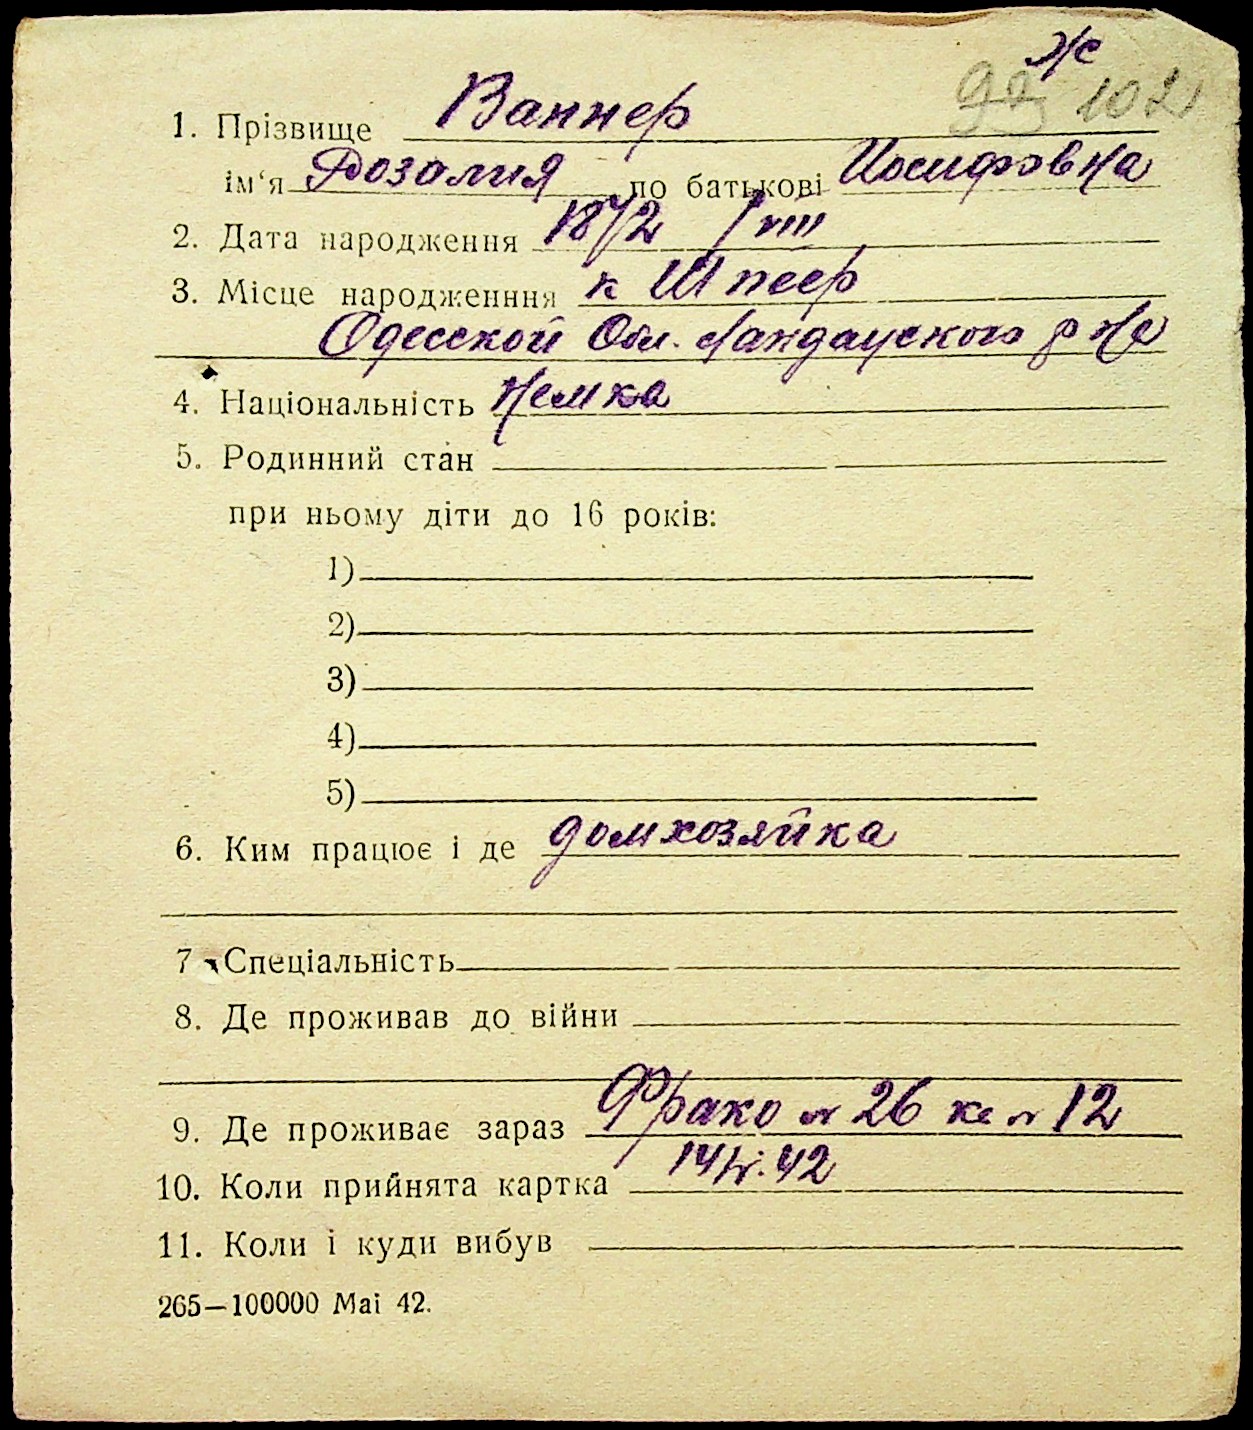 Ж
99 102
1. Прізвище Ваннер
ім‘я Розалия по батькові Иосифовна
2. Дата народження 1872 VIII
3. Місце народженння к Шпеер
Одесской Обл. Ландауского р на
4. Національність Немка
5. Родинний стан
при ньому діти до 16 років:
1)
2)
3)
4)
5)
6. Ким працює і де домхозяйка
7 Спеціальність
8. Де проживав до війни
9. Де проживає зараз Франко № 26 кв № 12
10. Коли прийнята картка 42
11. Коли і куди вибув
265—100000 Маі 42.